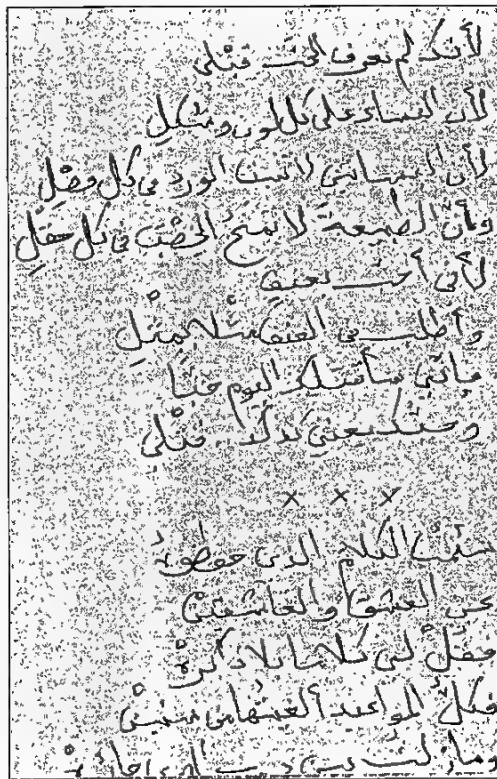 لأنك لم تعرف الحب قبلي
لأن النساء على كل لون وشكل
لأن البساتين لا تنبت الورد في كل فصل
وأن الطبيعة لا تمنح الخصب في كل حقل
لأني أحب بعنف
وأطلب في العنف مثلا بمثل
فإني سأقتلك اليوم حبا
وحبك يعني كذلك قتلي
× × ×
سئمت الكلام الذي حفظوه
عن العشق والعاشقين
فقل لي كلاما بلا ذاكرة
فكل المواعيد ألغيتها من سنين
وما زلت